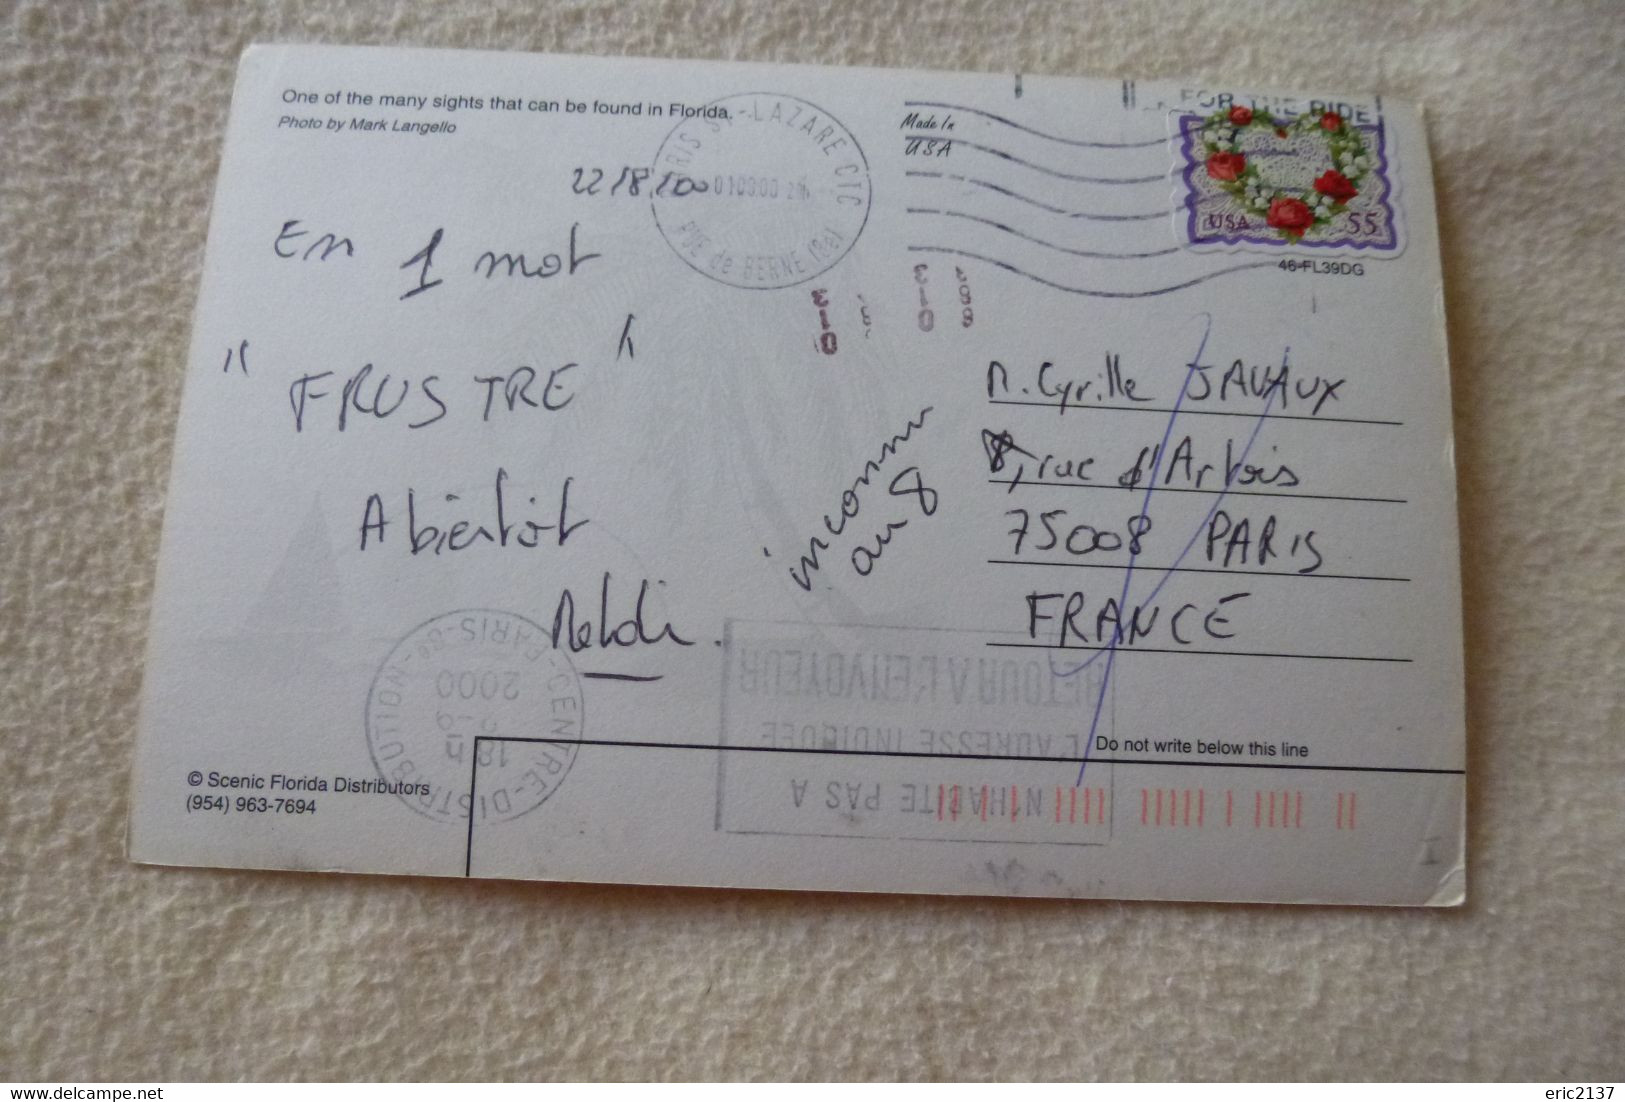 One of the many sights that can be found in Florida.
Photo by Mark Langello
22/8/00
En 1 mot
" FRUSTRE "
A bientôt
PARIS ST-LAZARE CTC
010900
RUE de BERNE (8e)
Made In
USA
FOR THE RIDE
USA 55
46-FL39DG
M. Cyrille JAVAUX
8, rue d'Artois
75008 PARIS
FRANCE
inconnu
au 8
RETOUR A L'ENVOYEUR
L'ADRESSE INDIQUEE
N'HABITE PAS A
PARIS-08e
CENTRE-DISTRIBUTION
18 H
2000
Do not write below this line
© Scenic Florida Distributors
(954) 963-7694
delcampe.net
eric2137